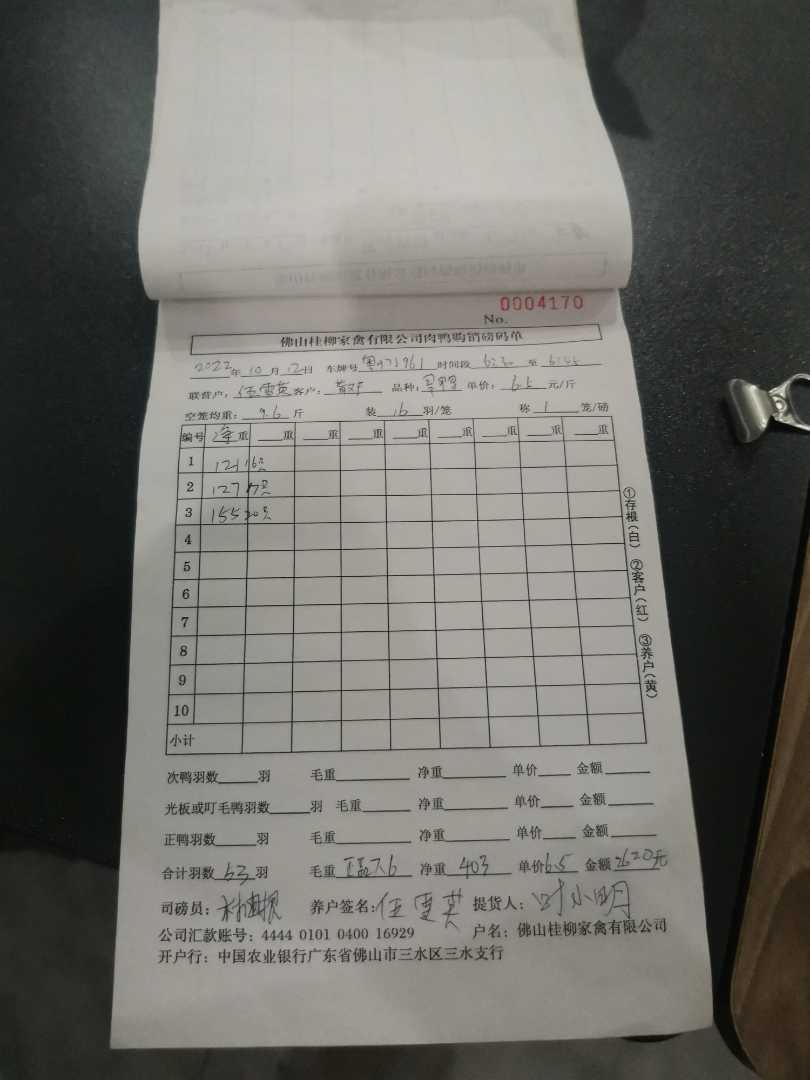 0004170
No.
佛山桂柳家禽有限公司肉鸭购销磅码单
2022年10月12日 车牌号 时间段 6:30 至 6:45
联营户: 任雪英 客户: 品种: 单价: 6.5 元/斤
空笼均重: 9.6 斤 装 16 羽/笼 称 1 笼/磅
编号 净重 重 重 重 重 重 重 重 重
1 121 16只
2 127 17只
3 155 20只
4
5
6
7
8
9
10
小计
①存根(白) ②客户(红) ③养户(黄)
次鸭羽数 羽 毛重 净重 单价 金额
光板或叮毛鸭羽数 羽 毛重 净重 单价 金额
正鸭羽数 羽 毛重 净重 单价 金额
合计羽数 53 羽 毛重 净重 403 单价 6.5 金额 2620元
司磅员: 养户签名: 任雪英 提货人: 叶小明
公司汇款账号: 4444 0101 0400 16929 户名: 佛山桂柳家禽有限公司
开户行: 中国农业银行广东省佛山市三水区三水支行